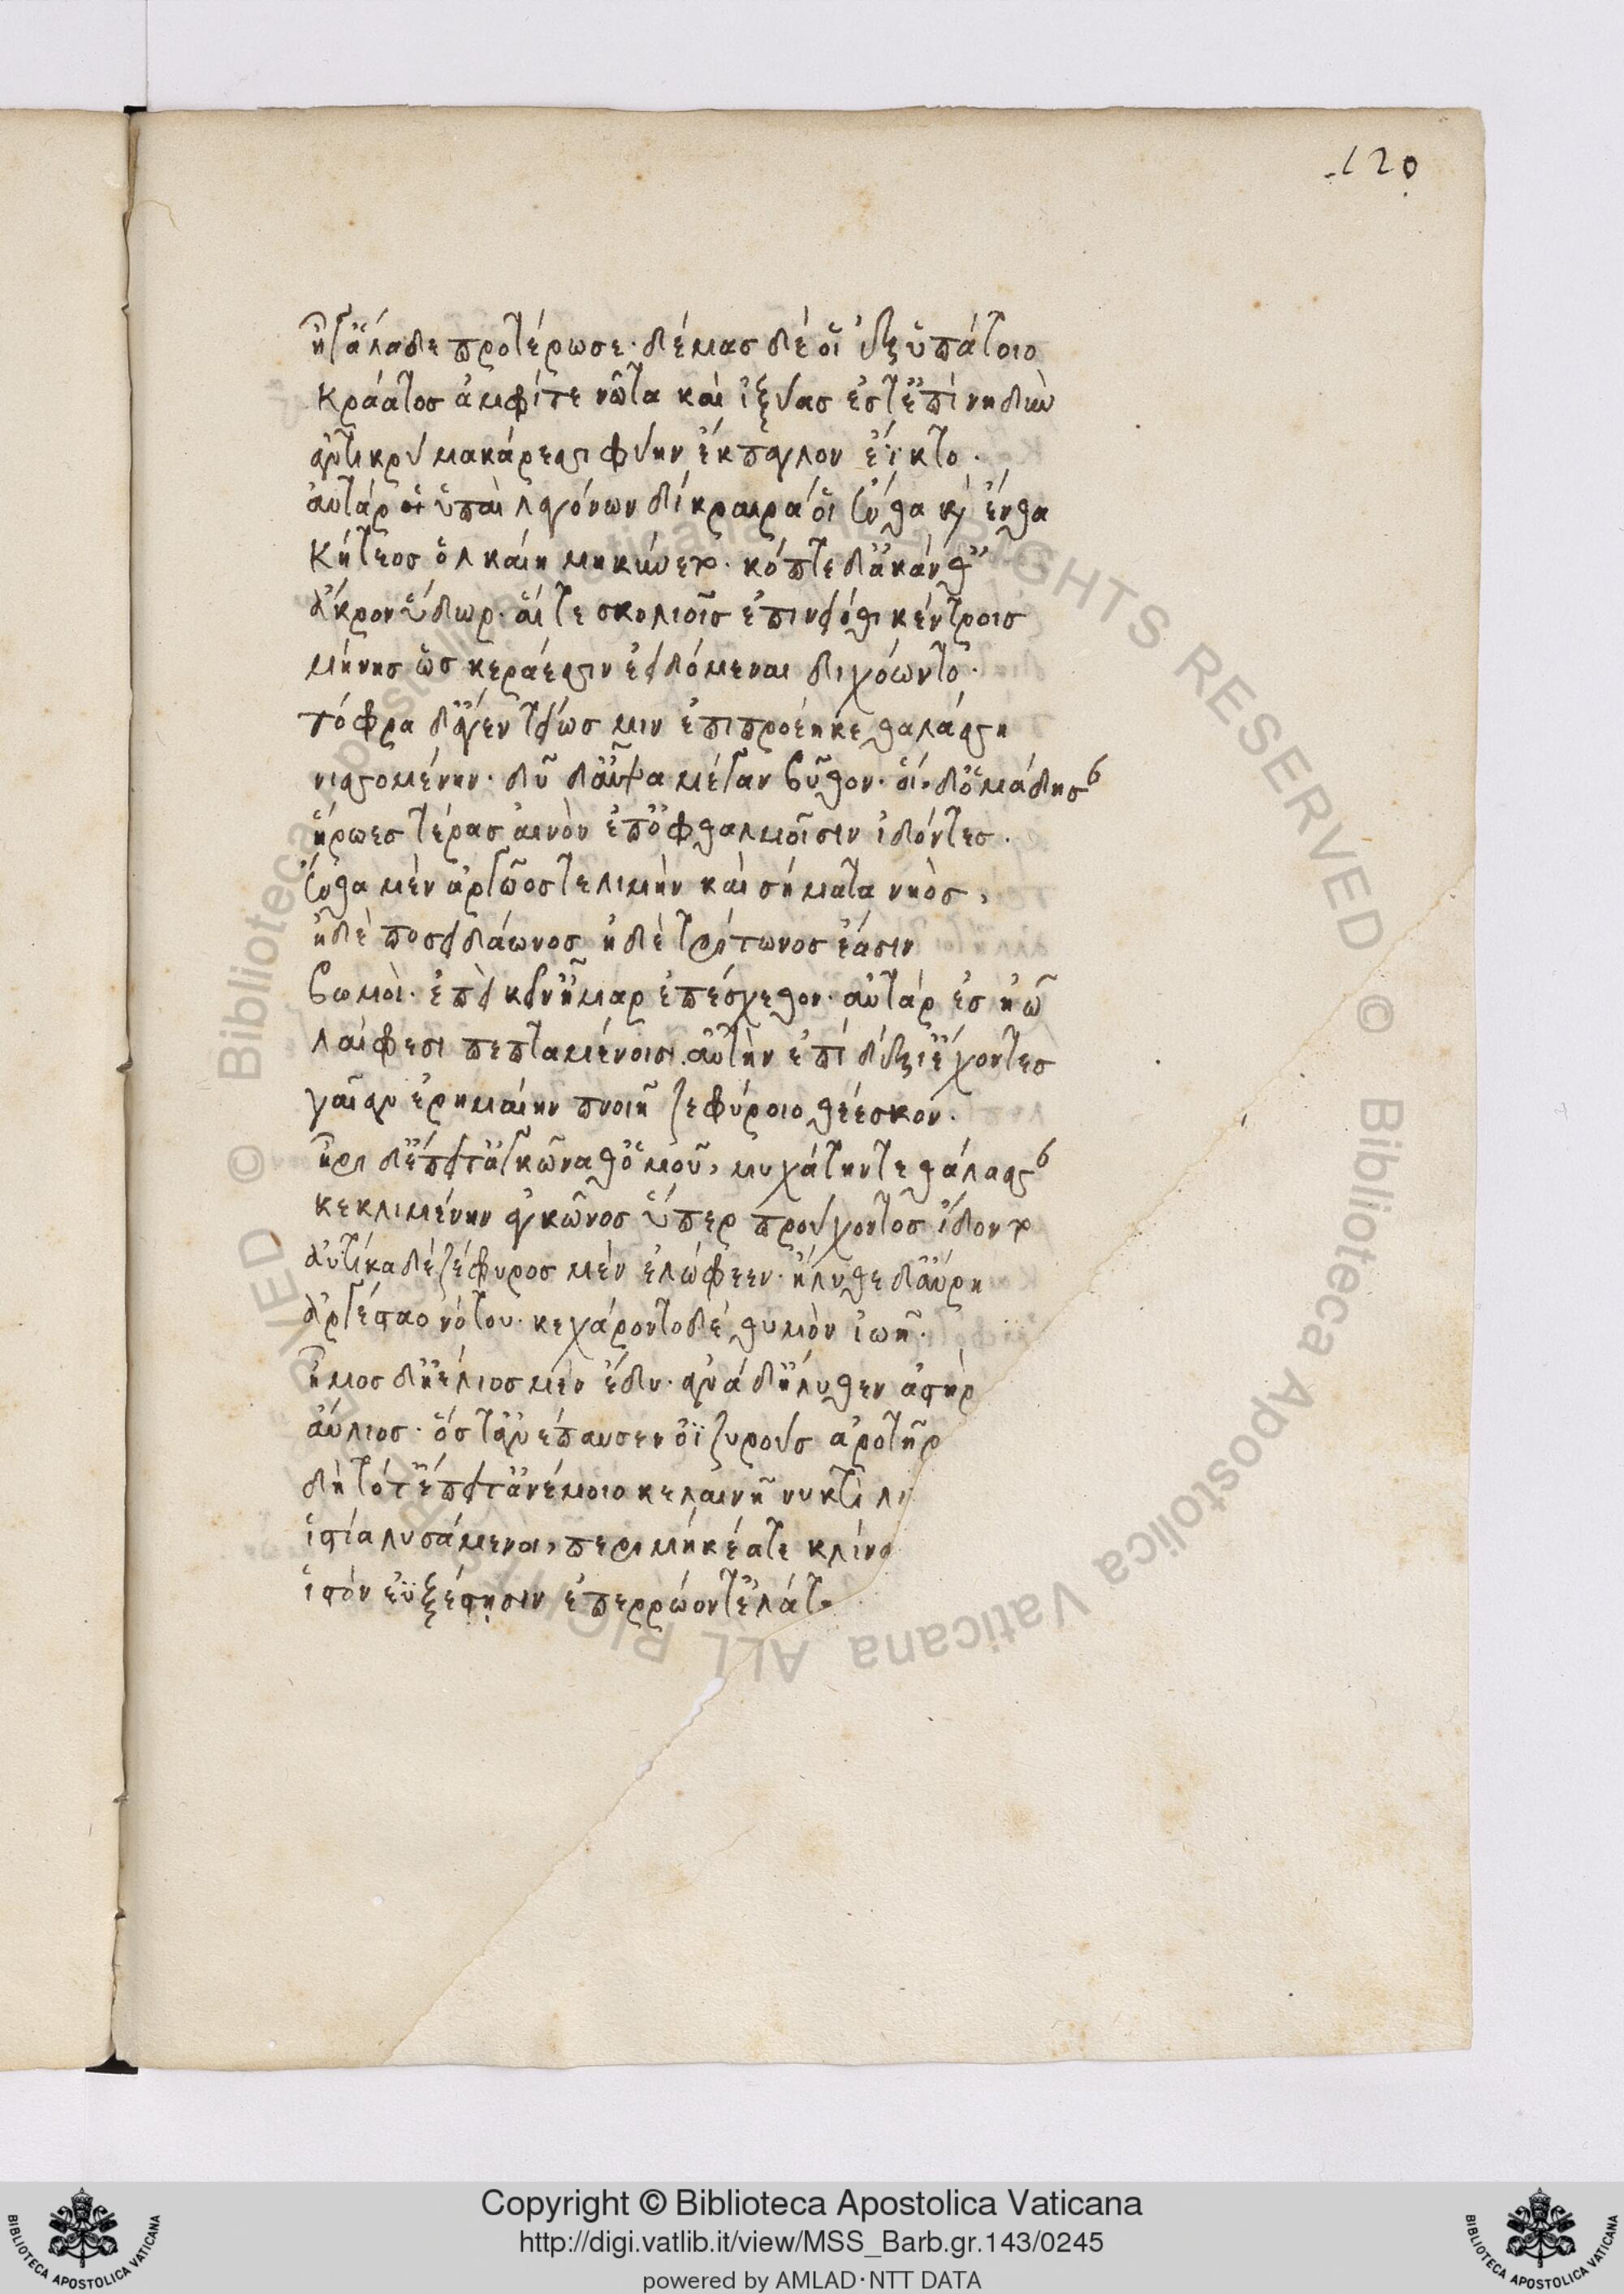 120
ἦγ' ἅλαδε προτέρωσε· δέμας δέ οἱ ἐξ ὑπάτοιο
κράατος ἀμφί τε νῶτα καὶ ἰξύας ἔστ' ἐπὶ νηδὺν
ἀντικρὺ μακάρεσσι φυὴν ἔκπαγλον ἔϊκτο·
αὐτάρ οἱ ὑπαὶ λαγόνων δίκραιρά οἱ ἔνθα καὶ ἔνθα
κήτεος ὁλκαίη μηκύνετο· κόπτε δ' ἀκάνθαις
ἄκρον ὕδωρ· αἵτε σκολιοῖς ἐπινειόθι κέντροις
μήνης ὡς κεράεσσιν ἐειδόμεναι διχόωντο·
τόφρα δ' ἄγεν τείως μιν ἐπιπροέηκε θαλάσση
νισσομένην· δῦ δ' αἶψα μέγαν βυθόν· οἱ δ' ὁμάδησαν
ἥρωες τέρας αἰνὸν ἐπ' ὀφθαλμοῖσιν ἰδόντες.
ἔνθα μὲν ἀργῶος τε λιμὴν καὶ σήματα νηὸς,
ἠδὲ ποσειδάωνος ἠδὲ τρίτωνος ἔασιν
βωμοὶ· ἐπεὶ κεῖν' ἦμαρ ἐπέσχεθον· αὐτὰρ ἐς ἠῶ
λαίφεσι πεπταμένοισι αὐτὴν ἐπὶ δεξί' ἔχοντες
γαῖαν ἐρημαίην πνοιῆ ζεφύροιο θέεσκον.
ἦρι δ' ἔπειτ' ἀγκῶνα θ' ὁμοῦ, μυχάτην τε θάλασσαν
κεκλιμένην ἀγκῶνος ὕπερ προύχοντος ἴδοντο
αὐτίκα δὲ ζέφυρος μὲν ἐλώφεεν· ἤλυθε δ' αὔρη
ἀργέσταο νότου· κεχάροντο δὲ θυμὸν ἰωῆ·
ἦμος δ' ἠέλιος μὲν ἔδυ· ἀνὰ δ' ἤλυθεν ἀστὴρ
αὔλιος· ὅς τ' ἀνέπαυσεν ὀϊζυροὺς ἀροτῆρ
δὴ τότ' ἔπειτ' ἀνέμοιο κελαινῆ νυκτὶ λι
ἱστία λυσάμενοι, περιμήκεά τε κλίνο
ἱστὸν ἐϋξέστησιν ἐπερρώοντ' ἐλάτῃ
Copyright © Biblioteca Apostolica Vaticana
http://digi.vatlib.it/view/MSS_Barb.gr.143/0245
powered by AMLAD·NTT DATA
BIBLIOTECA APOSTOLICA VATICANA
BIBLIOTECA APOSTOLICA VATICANA
© Biblioteca Apostolica Vaticana ALL RIGHTS RESERVED © Biblioteca Apostolica Vaticana ALL RIGHTS RESERVED